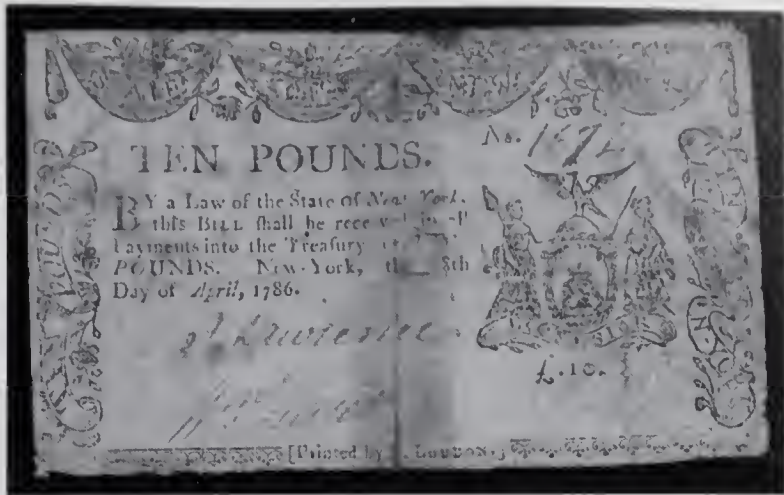 TEN POUNDS.
No.
BY a Law of the State of New York,
this BILL shall be received in all
Payments into the Treasury
POUNDS. New-York, the 8th
Day of April, 1786.
A Lawrence
£.10.
[Printed by LOUDON.]